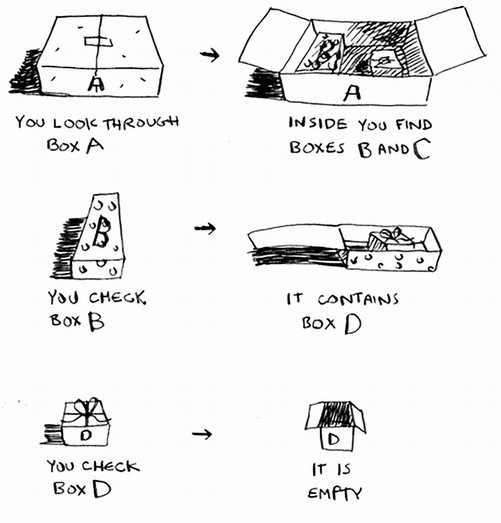 A
A
YOU LOOK THROUGH
BOX A
INSIDE YOU FIND
BOXES B AND C
B
YOU CHECK
BOX B
IT CONTAINS
BOX D
D
D
YOU CHECK
BOX D
IT IS
EMPTY